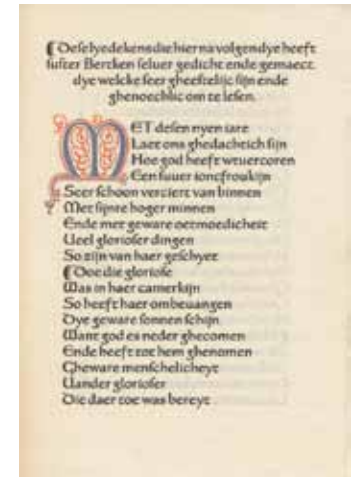 ¶ Dese lyedekens die hier na volgen dye heeft
suster Bertken seluer gedicht ende gemaect.
dye welcke seer gheestelijc sijn ende
ghenoechlic om te lesen.
MET desen nyen iare
Laet ons ghedachtich sijn
Hoe god heeft wtuercoren
Een suuer ioncfroukijn
Seer schoon verciert van binnen
Met sijnre hoger minnen
Ende met geware oetmoedicheit
Ueel glorioser dingen
So zijn van haer geschyet
¶ Doe die gloriose
Was in haer camerkijn
So heeft haer ombeuangen
Dye geware sonnen schijn
Want god es neder ghecomen
Ende heeft tot hem ghenomen
Gheware menschelicheyt
Uander glorioser
Die daer toe was bereyt